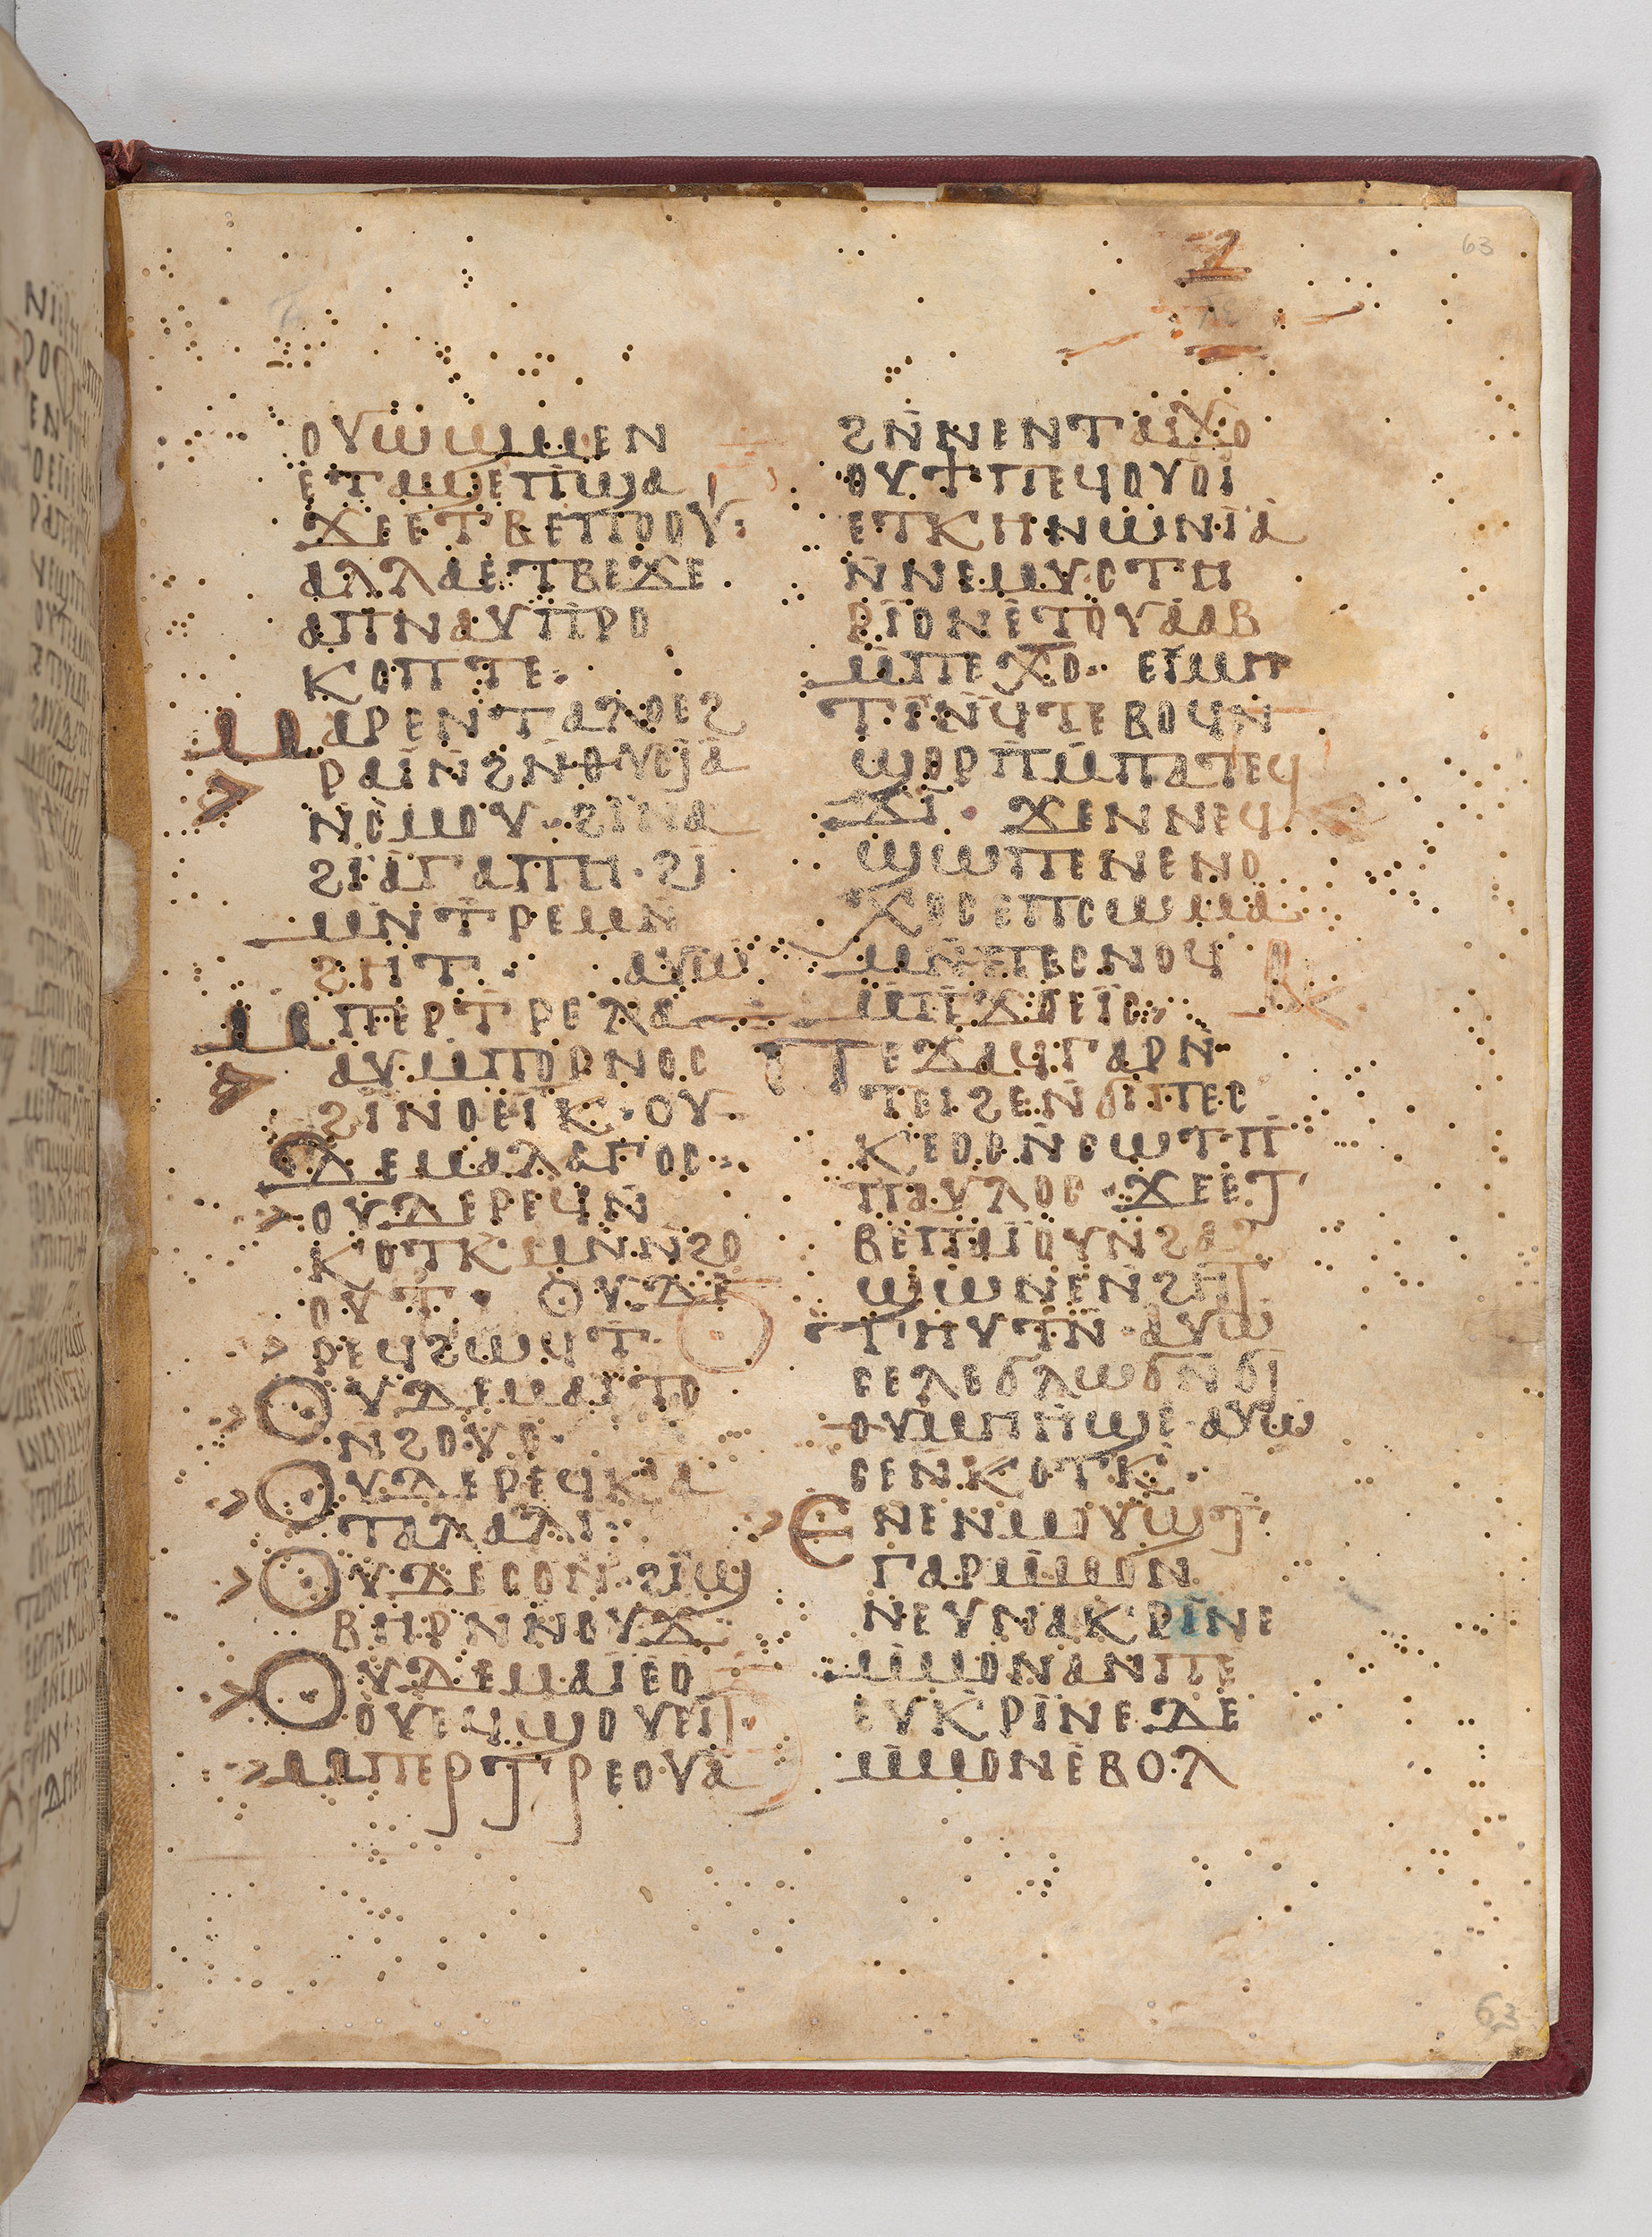 63
ⲟⲩⲱϣⲙⲉⲛ
ⲉⲧⲁϣⲉⲡϣⲁ
ϫⲉⲉⲧⲃⲉⲡⲟⲟⲩ:
ⲁⲗⲗⲁⲉⲧⲃⲉϫⲉ
ⲁⲡⲛⲁⲩⲡⲣⲟ
ⲕⲟⲡⲧⲉ·
ⲙⲁⲣⲉⲛⲧⲁⲗⲟⲉϩ
ⲣⲁⲓⲛϩⲛⲑⲩⲥⲓⲁ
ⲛⲥⲙⲟⲩ·ϩⲓⲛⲁ
ϩⲓⲁⲅⲁⲡⲏ·ϩⲓ
ⲙⲛⲧⲣⲉⲙⲛ
ϩⲏⲧ· ⲁⲩⲱ
ⲙⲡⲉⲣⲧⲣⲉⲗⲁ
ⲁⲩⲙⲡⲟⲣⲛⲟⲥ
ϩⲓⲛⲟⲉⲓⲕ·ⲟⲩ
ⲇⲉⲙⲁⲗⲁⲅⲟⲥ·
ⲟⲩⲇⲉⲣⲉϥⲛ
ⲕⲟⲧⲕⲙⲛⲛϩⲟ
ⲟⲩⲧ· ⲟⲩⲇⲉ
ⲣⲉϥϩⲱϥⲧ·
ⲟⲩⲇⲉⲙⲁⲓⲧⲟ
ⲛϩⲟⲩⲟ·
ⲟⲩⲇⲉⲣⲉϥⲕⲁ
ⲧⲁⲗⲁⲗⲓ:
ⲟⲩⲇⲉⲥⲟⲛ·ϩⲓϣ
ⲃⲏⲣⲛⲛⲟⲩϫ
ⲟⲩⲇⲉⲙⲁⲓⲉⲟ
ⲟⲩⲉϥϣⲟⲩⲉⲓⲧ·
ⲙⲡⲉⲣⲧⲣⲉⲟⲩⲁ
ϩⲛⲛⲉⲛⲧⲁⲓϫⲟ
ⲟⲩϯⲡⲉϥⲟⲩⲟⲓ
ⲉⲧⲕⲏⲛⲱⲛⲓⲁ
ⲛⲛⲉⲙⲩⲥⲧⲏ
ⲣⲓⲟⲛⲉⲧⲟⲩⲁⲁⲃ
ⲙⲡⲉⲭⲥ· ⲉⲓⲙⲏ
ⲧⲓⲛϥⲧⲉⲃⲟϥⲛ
ϣⲟⲣⲡⲙⲡⲁⲧⲉϥ
ϫⲓ· ϫⲉⲛⲛⲉϥ
ϣⲱⲡⲉⲛⲉⲛⲟ
ⲭⲟⲥⲉⲡⲥⲱⲙⲁ
ⲙⲛⲡⲉⲥⲛⲟϥ
ⲙⲡϫⲟⲉⲓⲥ:
ⲡⲉϫⲁϥⲅⲁⲣⲛ
ⲧⲉⲓϩⲉⲛϭⲓⲡⲉⲥ
ⲕⲉⲟⲥⲛⲥⲱⲧⲡ
ⲡⲁⲩⲗⲟⲥ·ϫⲉⲉⲧ
ⲃⲉⲡⲁⲓⲟⲩⲛϩⲁϩ
ϣⲱⲛⲉⲛϩⲏⲧ
ⲧⲏⲩⲧⲛ·ⲁⲩⲱ
ⲥⲉⲗⲉϭⲗⲱϭⲛϭⲓ
ⲟⲩⲙⲏⲏϣⲉ·ⲁⲩⲱ
ⲥⲉⲛⲕⲟⲧⲕ·
ⲉⲛⲉⲛⲙⲟⲩϣⲧ
ⲅⲁⲣⲙⲙⲟⲛ
ⲛⲉⲩⲛⲁⲕⲣⲓⲛⲉ
ⲙⲙⲟⲛⲁⲛⲡⲉ
ⲉⲩⲕⲣⲓⲛⲉⲇⲉ
ⲙⲙⲟⲛⲉⲃⲟⲗ
63